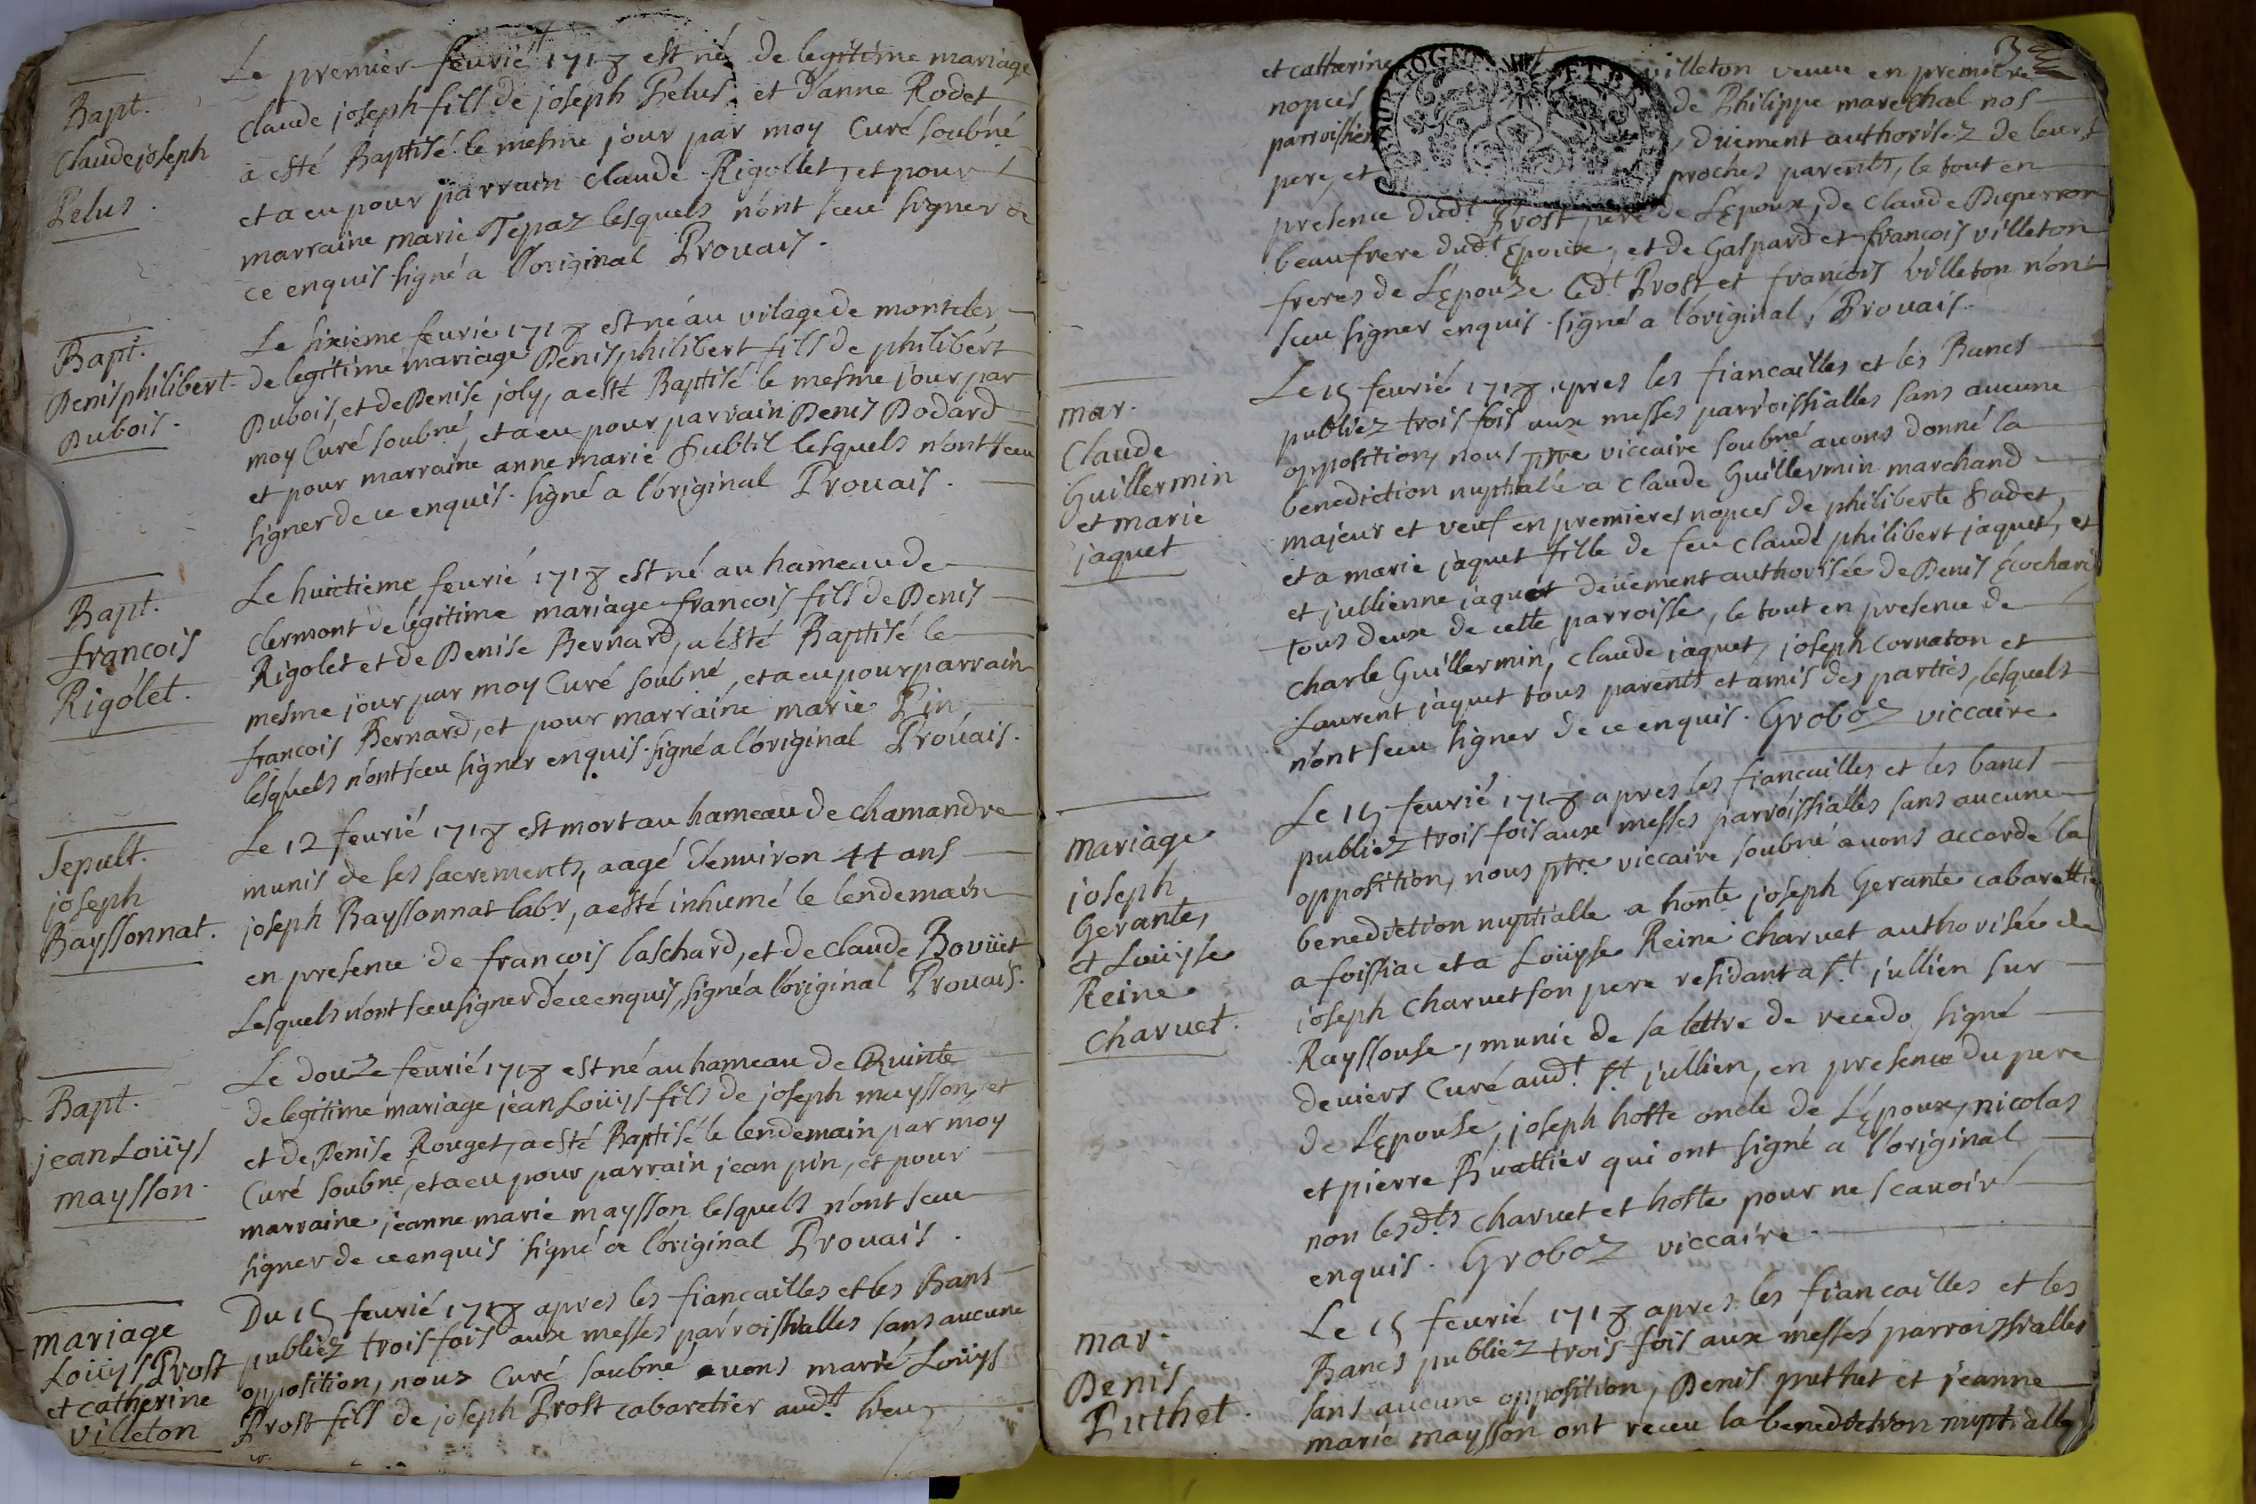 Bapt.
Claude joseph
Pelus.
Le premier feurié 1718 est né de legitime mariage
Claude joseph fils de joseph Pelus et d'anne Rodet
a esté Baptisé le mesme jour par moy Curé soubné
et a eu pour parrain Claude Rigollet, et pour
marraine marie Tepaz lesquels n'ont sceu signer de
ce enquis signé a l'original Prouais.
Bapt.
Denis philibert
Dubois.
Le sixieme feurié 1718 est né au vilage de montcler
de legitime mariage Denis philibert fils de philibert
Dubois, et de Denise joly, a esté Baptisé le mesme jour par
moy Curé soubné, et a eu pour parrain Denis Dodard
et pour marraine anne marie Subtil lesquels n'ont sceu
signer de ce enquis. signé a l'original Prouais.
Bapt.
francois
Rigolet.
Le huictieme feurié 1718 est né au hameau de
Clermont de legitime mariage francois fils de Denis
Rigolet et de Denise Bernard, a esté Baptisé le
mesme jour par moy Curé soubné, et a eu pour parrain
francois Bernard, et pour marraine marie Pin
lesquels n'ont sceu signer enquis. signé a l'original Prouais.
Sepult.
joseph
Bayssonnat.
Le 12 feurié 1718 est mort au hameau de chamandre
munis de ses sacrements, aagé d'enuiron 44 ans
joseph Bayssonnat labr, a esté inhumé le lendemain
en presence de francois laschard, et de claude Bovüet
Lesquels n'ont sceu signer de ce enquis, signé a l'original Prouais.
Bapt.
jean Loüys
maysson.
Le douze feurié 1718 est né au hameau de Quinte
de legitime mariage jean Loüys fils de joseph maysson, et
et de Denise Rouget, a esté Baptisé le lendemain par moy
Curé soubné, et a eu pour parrain jean pin, et pour
marraine jeanne marie maysson lesquels n'ont sceu
signer de ce enquis signé a l'original Prouais.
mariage
Loüys Prost
et catherine
villeton
Du 15 feurié 1718 apres les fiancailles et les Bans
publiez trois fois aux messes parroissialles sans aucune
opposition, nous Curé soubné auons marié Loüys
Prost fils de joseph Prost cabaretier audt lieu
et catherine villeton veuue en premiere
nopces de Philippe marechal nos
parroissien duement authorisez de leurs
pere, et proches parents, le tout en
presence dudt Prost pere de L'epoux, de Claude Duperron
beaufrere dudt Epoux, et de Gaspard et francois villeton
freres de L'epouze Ledt Prost et francois villeton n'ont
sceu signer enquis. signé a l'original, Prouais.
mar.
Claude
Guillermin
et marie
jaquet
Le 15 feurié 1718 apres les fiancailles et les Bancs
publiez trois fois aux messes parroissialles sans aucune
opposition, nous ptre viccaire soubné auons donné la
benediction nuptialle a Claude Guillermin marchand
majeur et veuf en premieres nopces de philiberte Sadet,
et a marie jaquet fille de feu Claude philibert jaquet, et
et jullienne jaquet deüement authorisée de Denis Ecochard
tous deux de cette parroisse, le tout en presence de
Charle Guillermin, Claude jaquet, joseph Cornaton et
Laurent jaquet tous parents et amis des parties, lesquels
n'ont sceu signer de ce enquis. Groboz viccaire
mariage
joseph
Gerante,
et Loüyse
Reine
Charuet.
Le 15 feurié 1718 apres les fiancailles et les bancs
publiez trois fois aux messes parroissialles sans aucune
opposition, nous ptre viccaire soubné auons accordé la
benediction nuptialle a honte joseph Gerante cabarettier
a foissiac et a Loüyse Reine Charuet authorisée de
joseph Charuet son pere residant a St jullien sur
Rayssouse, munie de sa lettre de recedo signé
deuiers Curé audt St jullien, en presence du pere
de L'epouse, joseph hoste oncle de L'epoux, nicolas
et pierre Buattier qui ont signé a l'original
non lesdts Charuet et hoste pour ne scauoir
enquis. Groboz viccaire.
mar.
Denis
Puthet.
Le 15 feurié 1718 apres les fiancailles et les
Bancs publiez trois fois aux messes parroissialles
sans aucune opposition, Denis puthet et jeanne
marie maysson ont receu la benediction nuptialle